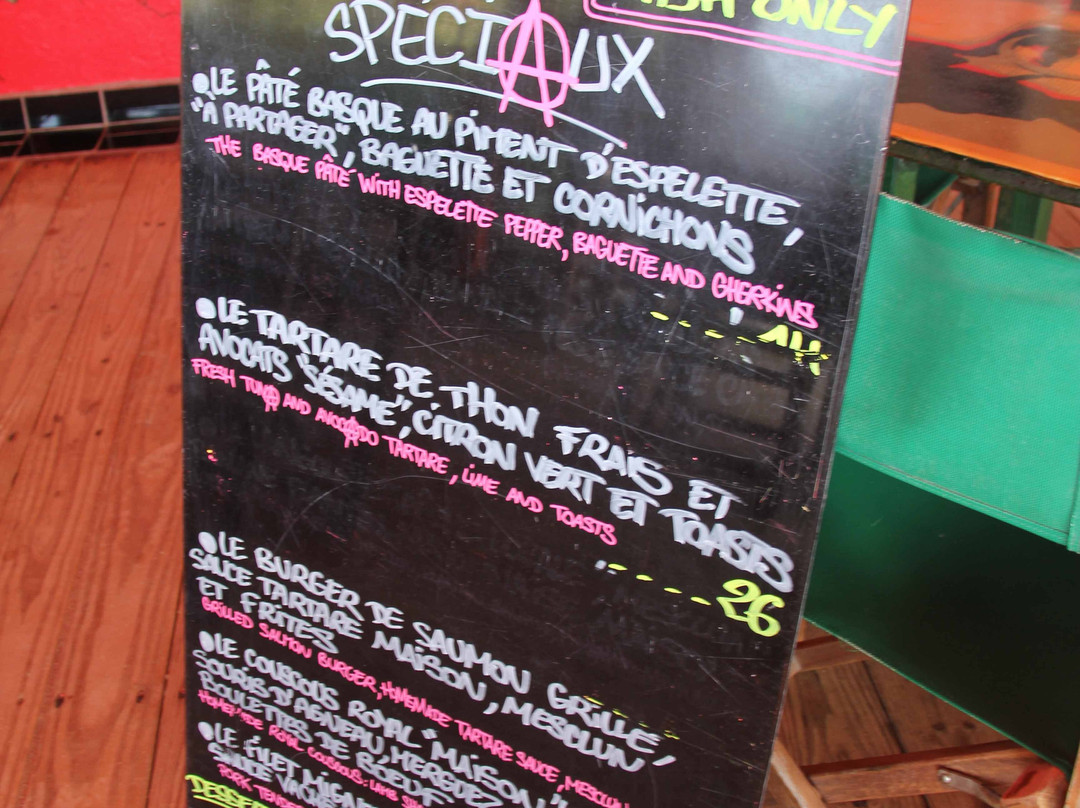 ONLY
SPÉCIAUX
●LE PÂTÉ BASQUE AU PIMENT D'ESPELETTE,
"À PARTAGER", BAGUETTE ET CORNICHONS
THE BASQUE PÂTÉ WITH ESPELETTE PEPPER, BAGUETTE AND GHERKINS
----14
●LE TARTARE DE THON FRAIS ET
AVOCATS "SÉSAME", CITRON VERT ET TOASTS
FRESH TUNA AND AVOCADO TARTARE, LIME AND TOASTS
----26
●LE BURGER DE SAUMON GRILLÉ,
SAUCE TARTARE MAISON, MESCLUN
ET FRITES
GRILLED SALMON BURGER, HOMEMADE TARTARE SAUCE, MESCLUN
●LE COUSCOUS ROYAL "MAISON"
SOURIS D'AGNEAU, MERGUEZ
BOULETTES DE BOEUF
HOMEMADE ROYAL COUSCOUS: LAMB
●LE FILET MIGNON
SAUCE
PORK